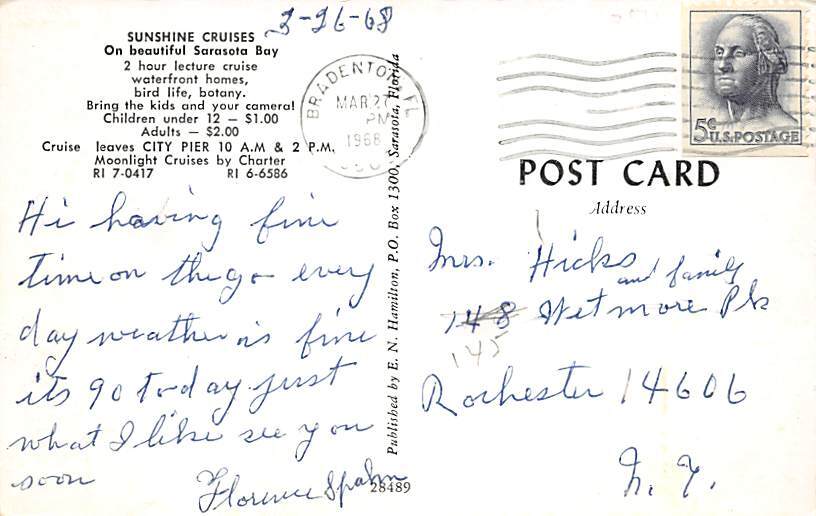 3-26-68
SUNSHINE CRUISES
On beautiful Sarasota Bay
2 hour lecture cruise
waterfront homes,
bird life, botany.
Bring the kids and your camera!
Children under 12 — $1.00
Adults — $2.00
Cruise leaves CITY PIER 10 A.M & 2 P.M.
Moonlight Cruises by Charter
RI 7-0417 RI 6-6586
Hi having fine
time on the go every
day weather is fine
its 90 today just
what I like see you
soon
Florence Spahn
BRADENTON, FL
MAR 27
PM
1968
Published by E. N. Hamilton, P.O. Box 1300, Sarasota, Florida
28489
5¢ U.S. POSTAGE
POST CARD
Address
Mrs. Hicks
and family
148 Wetmore Pk
145
Rochester 14606
N. Y.